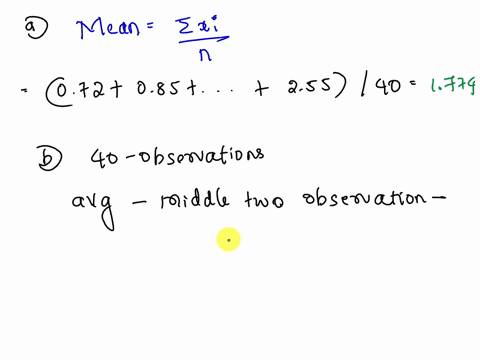 a) Mean = Σxi / n
= (0.72 + 0.85 + ... + 2.55) / 40 = 1.774
b) 40 - observations
avg - middle two observation -